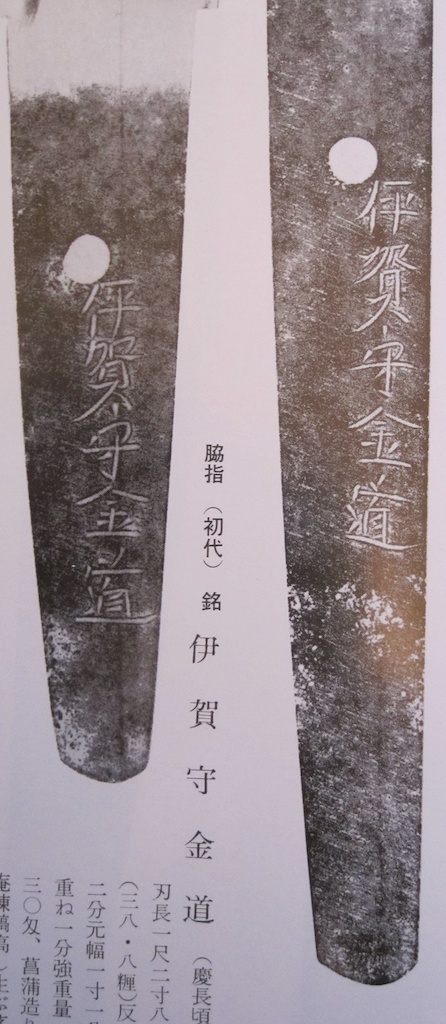 伊賀守金道
脇指 （初代） 銘 伊賀守金道 （慶長頃
刃長一尺二寸八
（三八・八糎）反
二分元幅一寸一
重ね一分強重量
三〇匁、菖蒲造り
庵棟鎬高
伊賀守金道